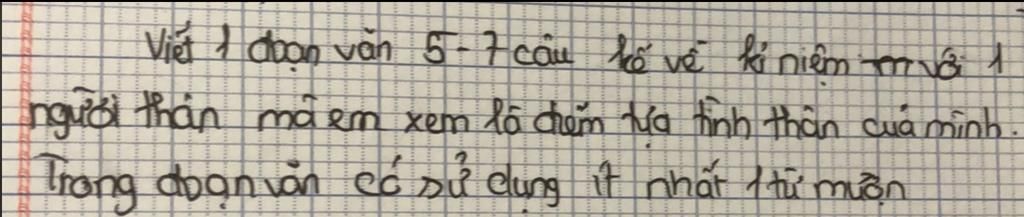 Viết 1 đoạn văn 5-7 câu kể về kỉ niệm với 1
người thân mà em xem là chỗ dựa tinh thần của mình.
Trong đoạn văn có sử dụng ít nhất 1 từ mượn